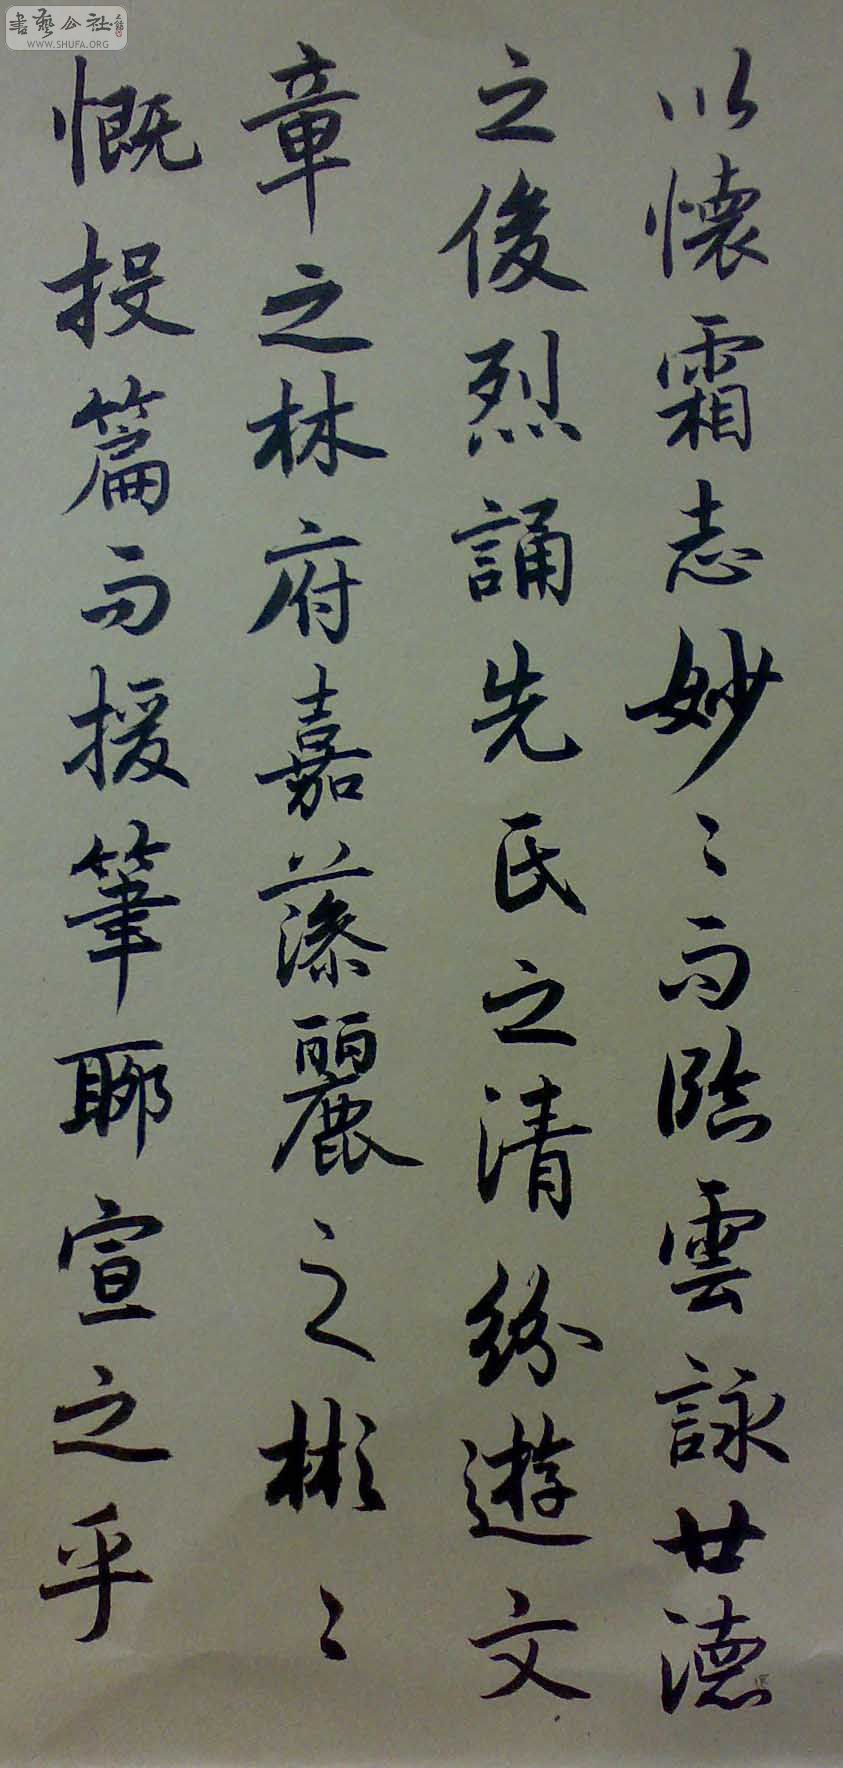 以懷霜志妙〻而臨雲詠世德
之俊烈誦先民之清紛遊文
章之林府嘉藻麗之彬〻
慨投篇而援筆聊宣之乎
書藝公社
WWW.SHUFA.ORG